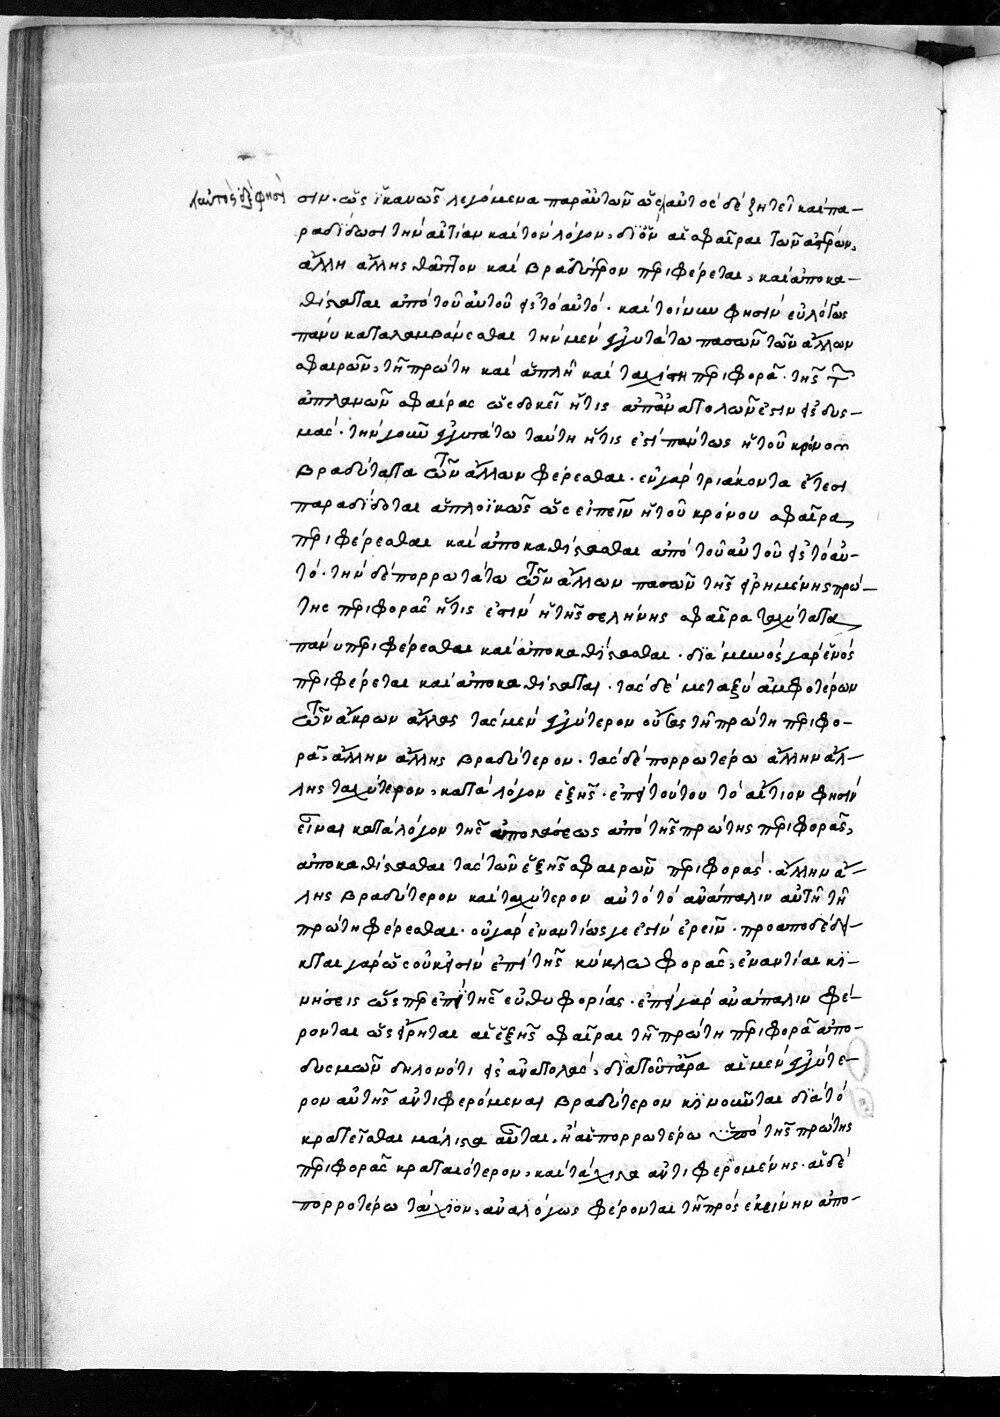 καὶ αὐτὸς ἐξέφησεν
σιν. ὡς ἱκανῶς λεγόμενα παρ' αὐτῶν ὡς καὶ αὐτὸς δὲ ζητεῖ καὶ πα-
ραδίδωσι τὴν αἰτίαν καὶ τὸν λόγον, δι' ὃν αἱ σφαῖραι τῶν ἀστέρων,
ἄλλη ἄλλης θᾶττον καὶ βραδύτερον περιφέρεται, καὶ ἀποκα-
θίσταται ἀπὸ τοῦ αὐτοῦ εἰς τὸ αὐτό. καὶ τοίνυν φησὶν εὐλόγως
πάνυ καταλαμβάνεσθαι τὴν μὲν ἐγγυτάτω πασῶν τῶν ἄλλων
σφαιρῶν, τῇ πρώτῃ καὶ ἁπλῇ καὶ ταχίστῃ περιφορᾷ. τῆς τῶν
ἀπλανῶν σφαίρας ὡς δοκεῖ ἥτις ἀπ' ἀνατολῶν ἐστιν εἰς δυσ-
μάς. τὴν γοῦν ἐγγυτάτω ταύτῃ ἥτις ἐστὶ πάντως ἡ τοῦ κρόνου
βραδύτατα τῶν ἄλλων φέρεσθαι. ἐν γὰρ τριάκοντα ἔτεσι
παραδίδοται ἁπλοϊκῶς ὡς εἰπεῖν ἡ τοῦ κρόνου σφαῖρα,
περιφέρεσθαι καὶ ἀποκαθίστασθαι ἀπὸ τοῦ αὐτοῦ εἰς τὸ αὐ-
τό. τὴν δὲ πορρωτάτω τῶν ἄλλων πασῶν τῆς εἰρημένης πρώ-
της περιφορᾶς ἥτις ἐστὶν ἡ τῆς σελήνης σφαῖρα ταχύτατα
πάνυ περιφέρεσθαι καὶ ἀποκαθίστασθαι. διὰ μηνὸς γὰρ ἑνὸς
περιφέρεται καὶ ἀποκαθίσταται. τὰς δὲ μεταξὺ ἀμφοτέρων
τῶν ἄκρων ἄλλας τὰς μὲν ἐγγύτερον οὔσας τῇ πρώτῃ περιφο-
ρᾷ, ἄλλην ἄλλης βραδύτερον. τὰς δὲ πορρωτέρω ἄλλην ἄλ-
λης ταχύτερον, κατὰ λόγον ἑξῆς. ἐπὶ τούτου τὸ αἴτιον φησὶν
εἶναι κατὰ λόγον τῆς ἀποστάσεως ἀπὸ τῆς πρώτης περιφορᾶς,
ἀποκαθίστασθαι τὰς τῶν ἑξῆς σφαιρῶν περιφοράς. ἄλλην ἄλ-
λης βραδύτερον καὶ ταχύτερον αὐτὸ τὸ ἀνάπαλιν αὐτῇ τῇ
πρώτῃ φέρεσθαι. οὐ γὰρ ἐναντίως γε ἐστὶν ἐρεῖν. προαποδέδει-
κται γὰρ ὡς οὐκ εἰσὶν ἐπὶ τῆς κύκλῳ φορᾶς, ἐναντίαι κι-
νήσεις ὥσπερ ἐπὶ τῆς εὐθυφορίας. ἐπεὶ γὰρ ἀνάπαλιν φέ-
ρονται ὡς εἴρηται αἱ ἑξῆς σφαῖραι τῇ πρώτῃ περιφορᾷ ἀπὸ
δυσμῶν δηλονότι εἰς ἀνατολάς, διὰ ταῦτ' ἄρα αἱ μὲν ἐγγύτε-
ρον αὐτῆς ἀντιφερόμεναι βραδύτερον κινοῦνται διὰ τὸ
κρατεῖσθαι μάλιστα αὗται. ἢ αἱ πορρωτέρω ὑπὸ τῆς πρώτης
περιφορᾶς κραταιότερον, καὶ τάχιστα ἀντιφερομένης. αἱ δὲ
πορροτέρω τάχιον, ἀναλόγως φέρονται τῇ πρὸς ἐκείνην ἀπο-